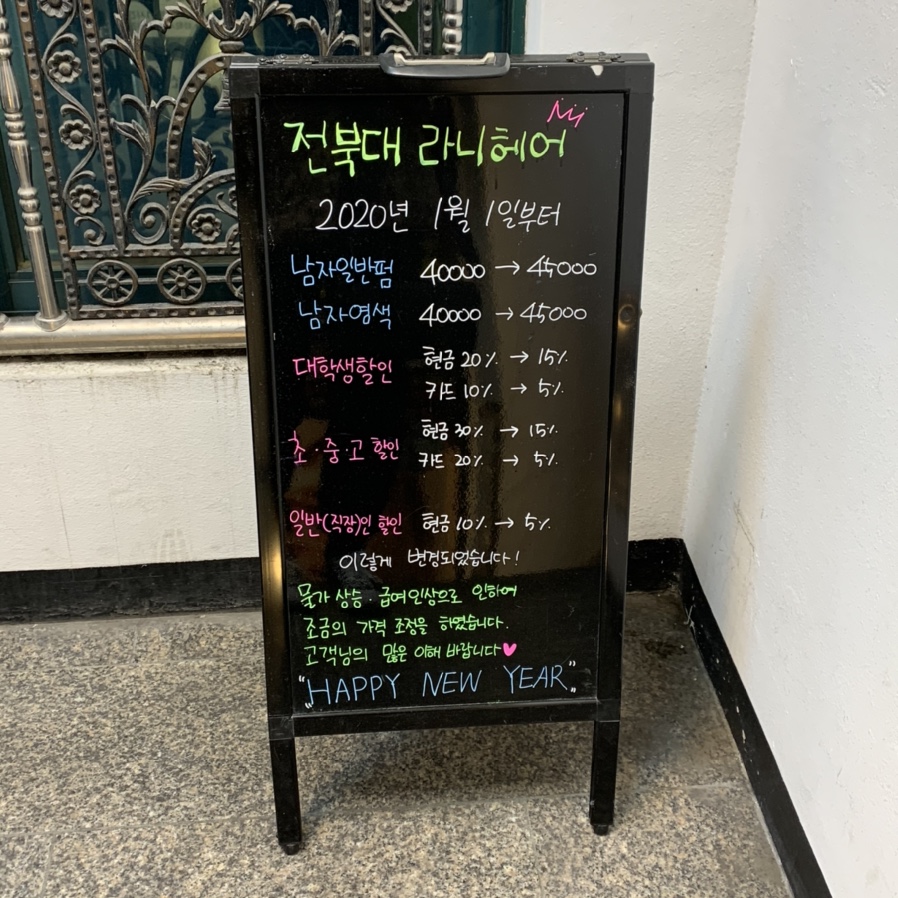 전북대 라니헤어
2020년 1월 1일부터
남자일반펌 40000 → 45000
남자염색 40000 → 45000
대학생할인 현금 20% → 15%
카드 10% → 5%
초·중·고 할인 현금 30% → 15%
카드 20% → 5%
일반(직장)인 할인 현금 10% → 5%
이렇게 변경되었습니다!
물가 상승·급여인상으로 인하여
조금의 가격 조정을 하였습니다.
고객님의 많은 이해 바랍니다♥
"HAPPY NEW YEAR"